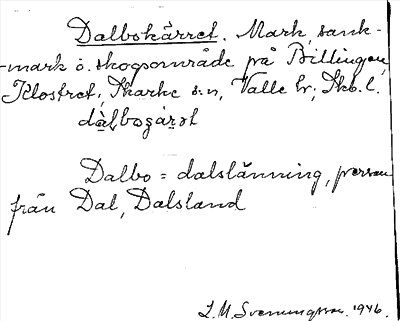 Dalbokärret. Mark, sank-
-mark o. skogsområde på Billingen,
Klostret, Skarke s:n, Valle hr; Skb. l.
dàlboʒàrət
Dalbo = dalslänning, person
från Dal, Dalsland
L. M. Svenungsson. 1946.